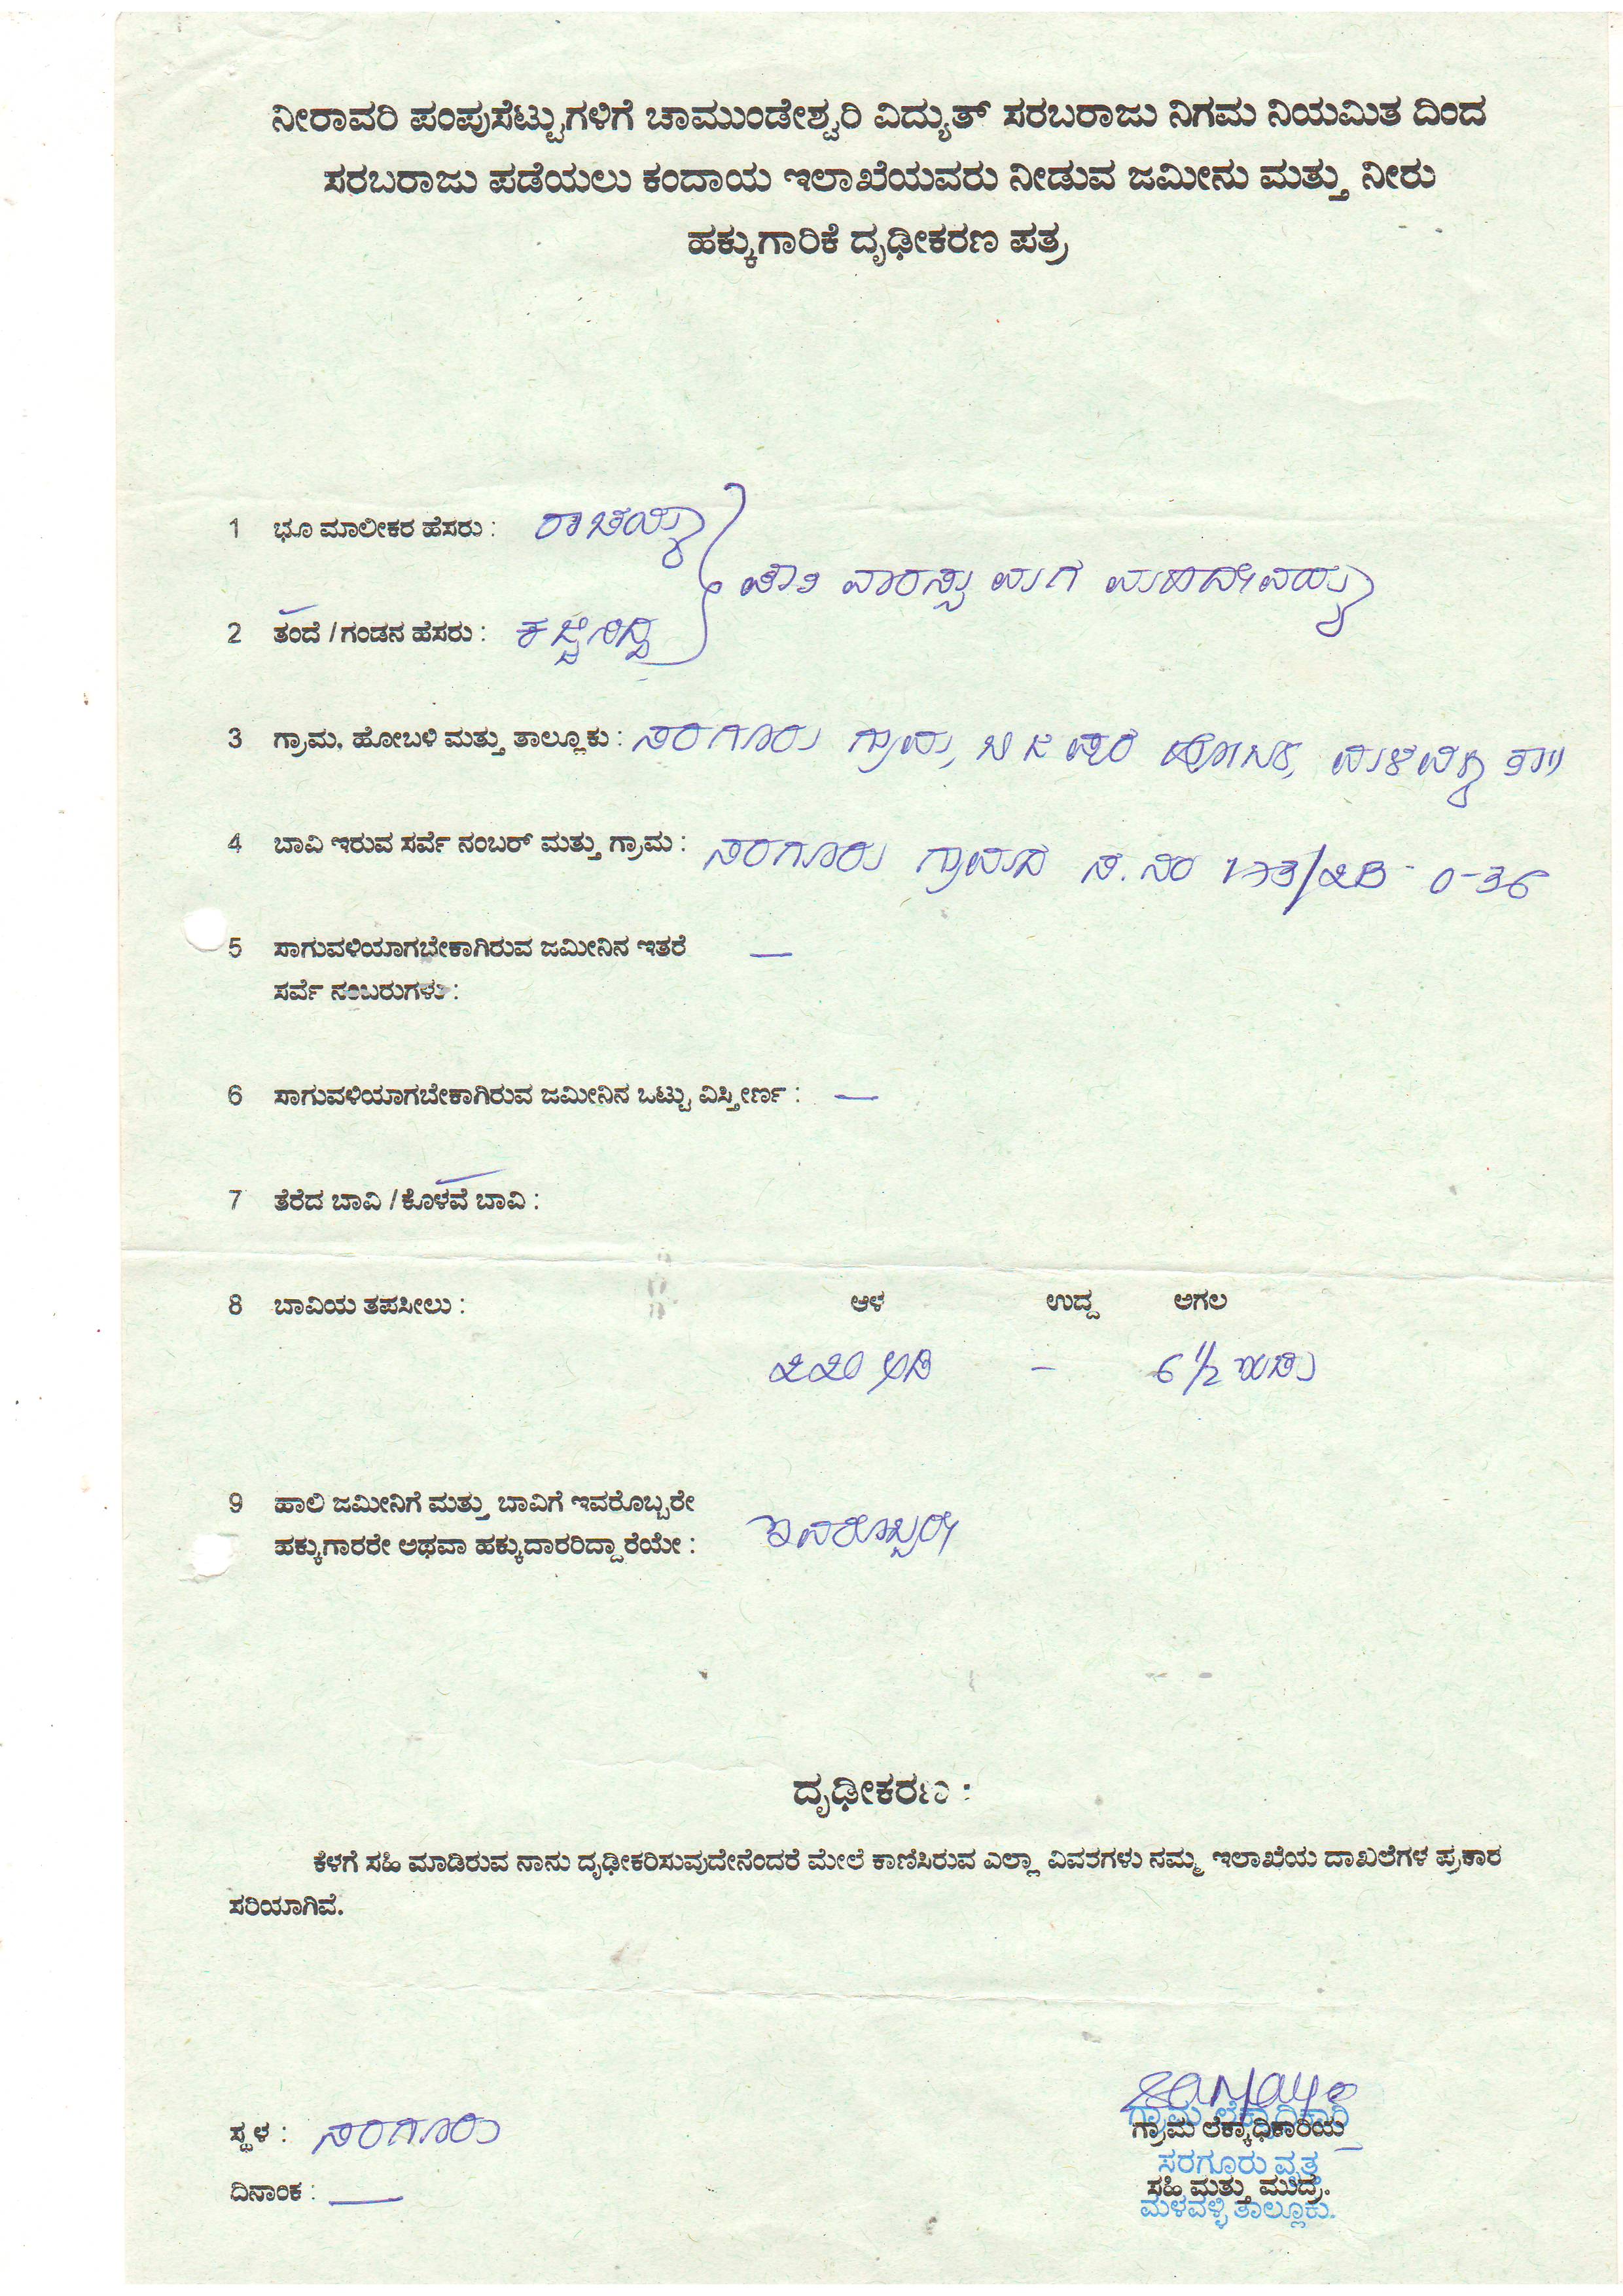 ನೀರಾವರಿ ಪಂಪುಸೆಟ್ಟುಗಳಿಗೆ ಚಾಮುಂಡೇಶ್ವರಿ ವಿದ್ಯುತ್ ಸರಬರಾಜು ನಿಗಮ ನಿಯಮಿತ ದಿಂದ
ಸರಬರಾಜು ಪಡೆಯಲು ಕಂದಾಯ ಇಲಾಖೆಯವರು ನೀಡುವ ಜಮೀನು ಮತ್ತು ನೀರು
ಹಕ್ಕುಗಾರಿಕೆ ದೃಢೀಕರಣ ಪತ್ರ
1 ಭೂ ಮಾಲೀಕರ ಹೆಸರು : ರಾಚಯ್ಯ
ವಾರಸ್ಸು ಮಗ ಮಹದೇವಯ್ಯ
2 ತಂದೆ / ಗಂಡನ ಹೆಸರು :
3 ಗ್ರಾಮ, ಹೋಬಳಿ ಮತ್ತು ತಾಲ್ಲೂಕು : ಸರಗೂರು ಗ್ರಾಮ, ಬಿ ಜಿ ಪುರ ಹೋಬಳಿ, ಮಳವಳ್ಳಿ ತಾ॥
4 ಬಾವಿ ಇರುವ ಸರ್ವೆ ನಂಬರ್ ಮತ್ತು ಗ್ರಾಮ : ಸರಗೂರು ಗ್ರಾಮದ ಸ.ನಂ 173/2B 0-36
5 ಸಾಗುವಳಿಯಾಗಬೇಕಾಗಿರುವ ಜಮೀನಿನ ಇತರೆ —
ಸರ್ವೆ ನಂಬರುಗಳು :
6 ಸಾಗುವಳಿಯಾಗಬೇಕಾಗಿರುವ ಜಮೀನಿನ ಒಟ್ಟು ವಿಸ್ತೀರ್ಣ : —
7 ತೆರೆದ ಬಾವಿ / ಕೊಳವೆ ಬಾವಿ :
8 ಬಾವಿಯ ತಪಸೀಲು : ಆಳ ಉದ್ದ ಅಗಲ
೭೭೦ ಅಡಿ - 6 1/2 ಇಂಚು
9 ಹಾಲಿ ಜಮೀನಿಗೆ ಮತ್ತು ಬಾವಿಗೆ ಇವರೊಬ್ಬರೇ
ಹಕ್ಕುಗಾರರೇ ಅಥವಾ ಹಕ್ಕುದಾರರಿದ್ದಾರೆಯೇ : ಇವರೊಬ್ಬರೇ
ದೃಢೀಕರಣ :
ಕೆಳಗೆ ಸಹಿ ಮಾಡಿರುವ ನಾನು ದೃಢೀಕರಿಸುವುದೇನೆಂದರೆ ಮೇಲೆ ಕಾಣಿಸಿರುವ ಎಲ್ಲಾ ವಿವರಗಳು ನಮ್ಮ ಇಲಾಖೆಯ ದಾಖಲೆಗಳ ಪ್ರಕಾರ
ಸರಿಯಾಗಿವೆ.
ಗ್ರಾಮ ಲೆಕ್ಕಾಧಿಕಾರಿ
ಸ್ಥಳ : ಸರಗೂರು ಗ್ರಾಮ ಲೆಕ್ಕಾಧಿಕಾರಿಯ
ಸರಗೂರು ವೃತ್ತ
ದಿನಾಂಕ : — ಸಹಿ ಮತ್ತು ಮುದ್ರೆ.
ಮಳವಳ್ಳಿ ತಾಲ್ಲೂಕು.